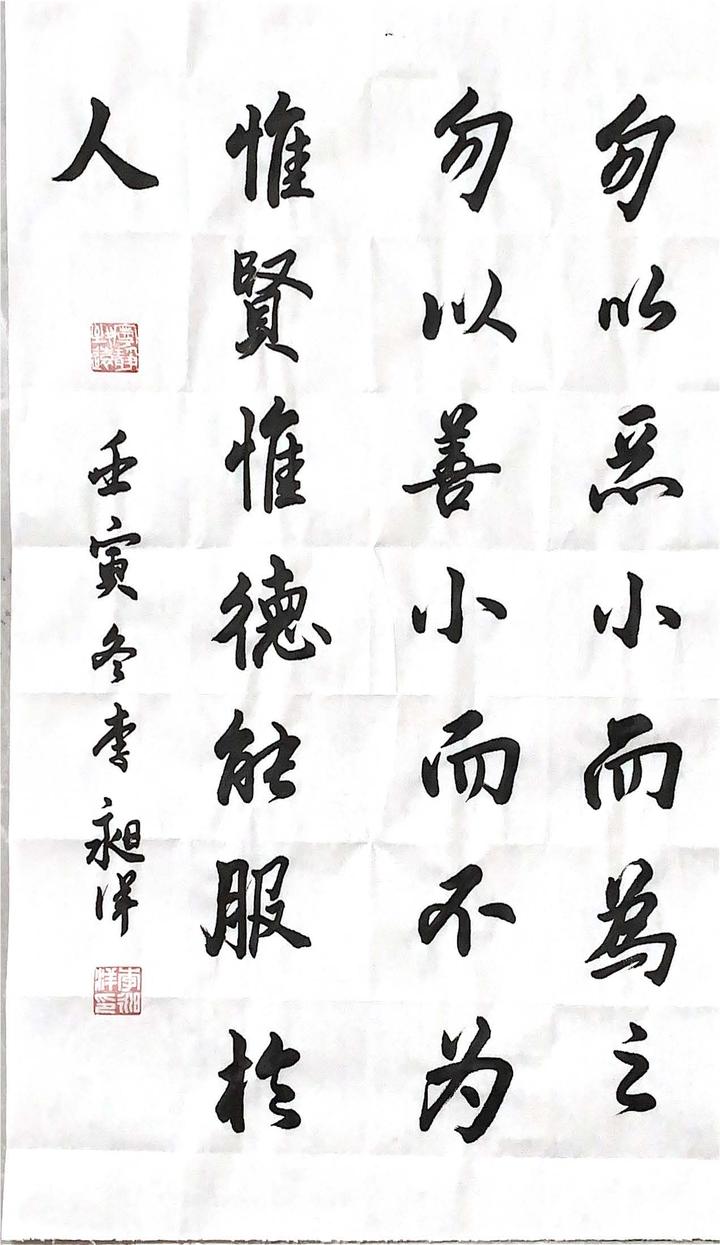 勿以恶小而為之
勿以善小而不为
惟賢惟德能服於
人
壬寅冬李昶洋